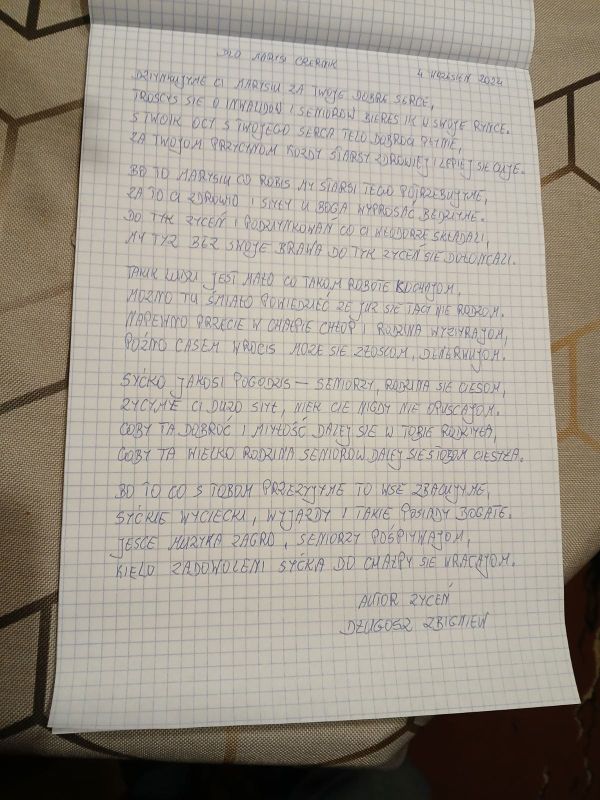 DLO MARYSI CZERNIK 4 WRZESIEŃ 2024
DZIYNKUJYME CI MARYSIU ZA TWOJE DOBRE SERCE,
TROSCYS SIE O INWALIDÓW I SENIORÓW BIERES IK W SWOJE RYNCE.
S TWOIK OCY S TWOJEGO SERCA TELO DOBROCI PŁYNIE,
ZA TWOJOM PRZYCYNOM KOZDY STARSY ZDROWIEJ I LEPIEJ SIE CUJE.
BO TO MARYSIU CO ROBIS MY STARSI TEGO POTRZEBUJYME,
ZA TO CI ZDROWIO I SIYŁY U BOGA WYPROSAĆ BEDZIYME.
DO TYK ZYCEŃ I PODZIYNKOWAŃ CO CI WŁODORZE SKŁADALI,
MY TYZ BEZ SWOJE BRAWA DO TYK ZYCEŃ SIE DOŁONCALI.
TAKIK LUDZI JEST MAŁO CO TAKOM ROBOTE KOCHAJOM,
MOZNO TU ŚMIAŁO POWIEDZIEĆ ZE JUZ SIE TACI NIE RODZOM.
NAPEWNO PRZECIE W CHAŁPIE CHŁOP I RODZINA WYZIYRAJOM,
POZNO CASEM WROCIS MOZE SIE ZŁOSCOM, DENERWUJOM.
SYĆKO JAKOSI POGODZIS – SENIORZY, RODZINA SIE CIESOM,
ZYCYME CI DUZO SIYŁ, NIEK CIE NIGDY NIE OPUSCAJOM.
COBY TA DOBROĆ I MIYŁOŚĆ DALEJ SIE W TOBIE RODZIYŁA,
COBY TA WIELKO RODZINA SENIORÓW DALEJ SIE S TOBOM CIESYŁA.
BO TO CO S TOBOM PRZEZYJYME TO WSE ZBACUJYME,
SYĆKIE WYCIECKI, WYJAZDY I TAKIE POSIADY BOGATE.
JESCE MUZYKA ZAGRO, SENIORZY POŚPIYWAJOM,
KIELO ZADOWOLENI SYĆKA DO CHAŁPY SIE WRACAJOM.
AUTOR ZYCEŃ
DŁUGOSZ ZBIGNIEW